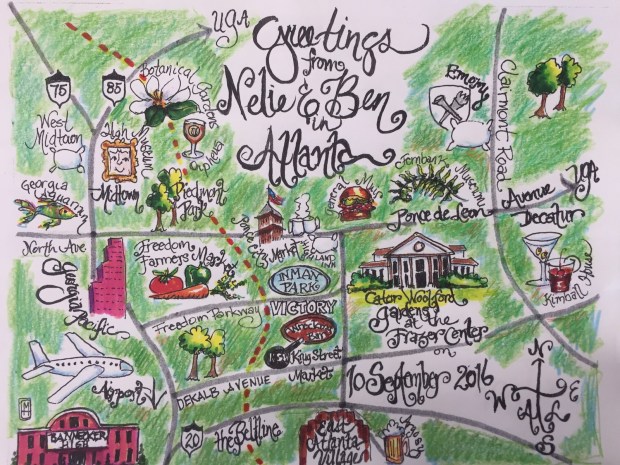 UGA
Greetings
from
Nelie & Ben
in
Atlanta
75
85
Botanical Gardens
West
Midtown
High
Museum
Midtown
Orpheus
Piedmont
Park
Georgia
Aquarium
Emory
Clairmont Road
Fernbank
Museum
General Muir
Ponce de Leon
Avenue
UGA
Decatur
Kimball
House
Ponce City
Market
Highland
Inn
North Ave
Georgia
Pacific
Freedom
Farmers Market
INMAN
PARK
VICTORY
Freedom Parkway
Krog Street
Market
Cator Woolford
Gardens
at the
Frazer Center
on
10 September 2016
N
W
E
S
Airport
DEKALB AVENUE
BANNEKER
HIGH
20
the Beltline
East
Atlanta
Village